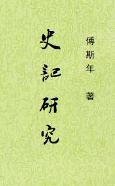 傅斯年 著
史記研究